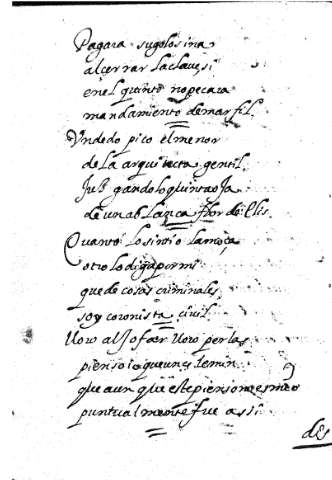 Pagara su golosina
al cerrar la clave, si
en el quinto no pecara
mandamiento de marfil.
Un dedo pico el menor
de la arquitecta gentil
Juzgandolo quinta oja
de una blanca flor de Lis.
Quanto lo sintio la moça
otro lo diga por mi
que de cosas criminales
soy coronista civil
lloro aljofar lloro perlas
pienso io que un celemin
que aun que este pienso no es mio
puntualmente fue assi
des